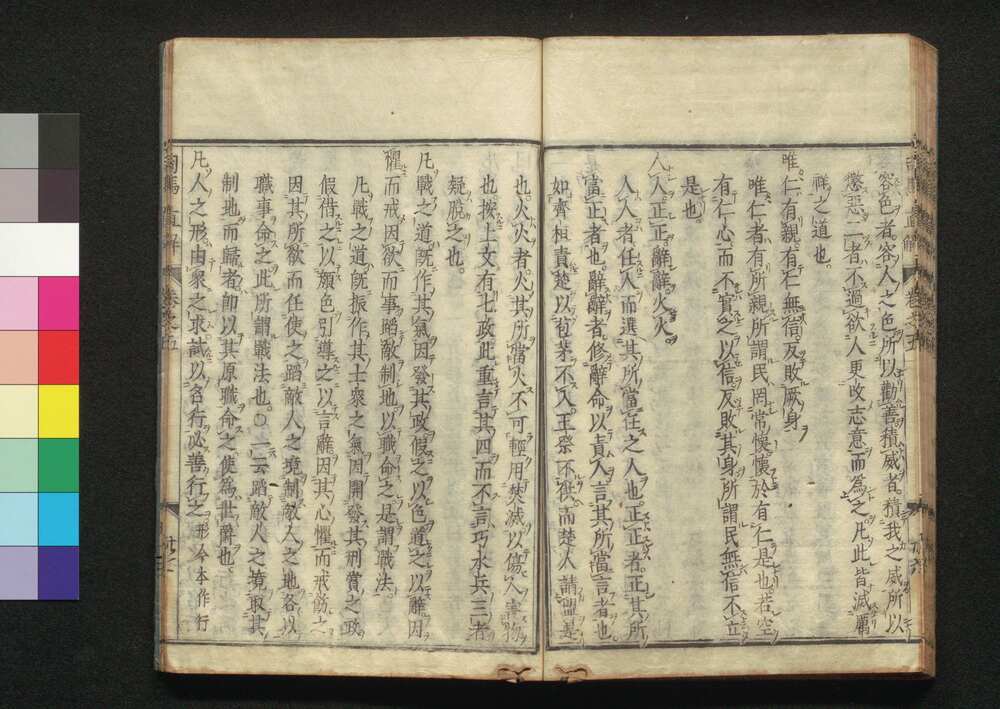 容色者容人之色所以勸善積威者積我之威所以
懲惡二者不過欲人更改志意而為之凡此皆滅厲
祥之道也
唯仁有親有仁無信反敗厥身
唯仁者有所親所謂民罔常懷懷於有仁是也若空
有仁心而不實之以信反敗其身所謂民無信不立
是也
人人正正辭辭火火
人人者任人而選其所當任之人也正正者正其所
當正者也辭辭者修辭命以責人言其所當言者也
如齊桓責楚以苞茅不入王祭不供而楚人請盟是
也火火者火其所當火不可輕用焚滅以傷人害物
也按上文有七政此重言其四而不言巧水兵三者
疑脫之也
凡戰之道既作其氣因發其政假之以色道之以辭因
懼而戒因欲而事蹈敵制地以職命之是謂戰法
凡戰之道既振作其士衆之氣因開發其刑賞之政
假借之以顏色引導之以言辭因其心懼而戒飭之
因其所欲而任使之蹈敵人之境制敵人之地各以
職事命之此所謂戰法也○一云蹈敵人之境取其
制地而歸者卽以其原職命之使為世爵也
凡人之形由衆之求試以名行必善行之形今本作行